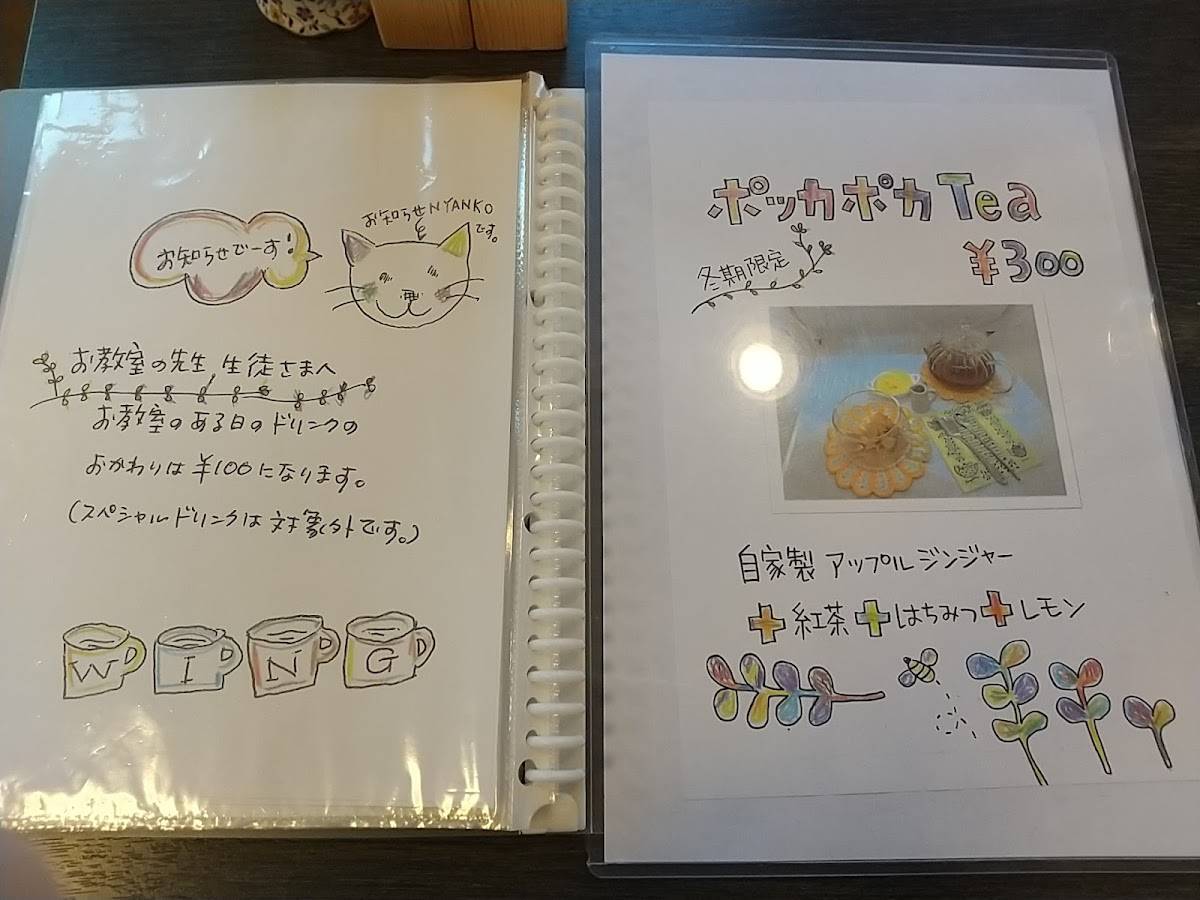 お知らせでーす!
お知らせNYANKO
です。
お教室の先生、生徒さまへ
お教室のある日のドリンクの
おかわりは¥100になります。
(スペシャルドリンクは対象外です。)
WING
ポッカポカTea
¥300
冬期限定
自家製アップルジンジャー
+紅茶+はちみつ+レモン